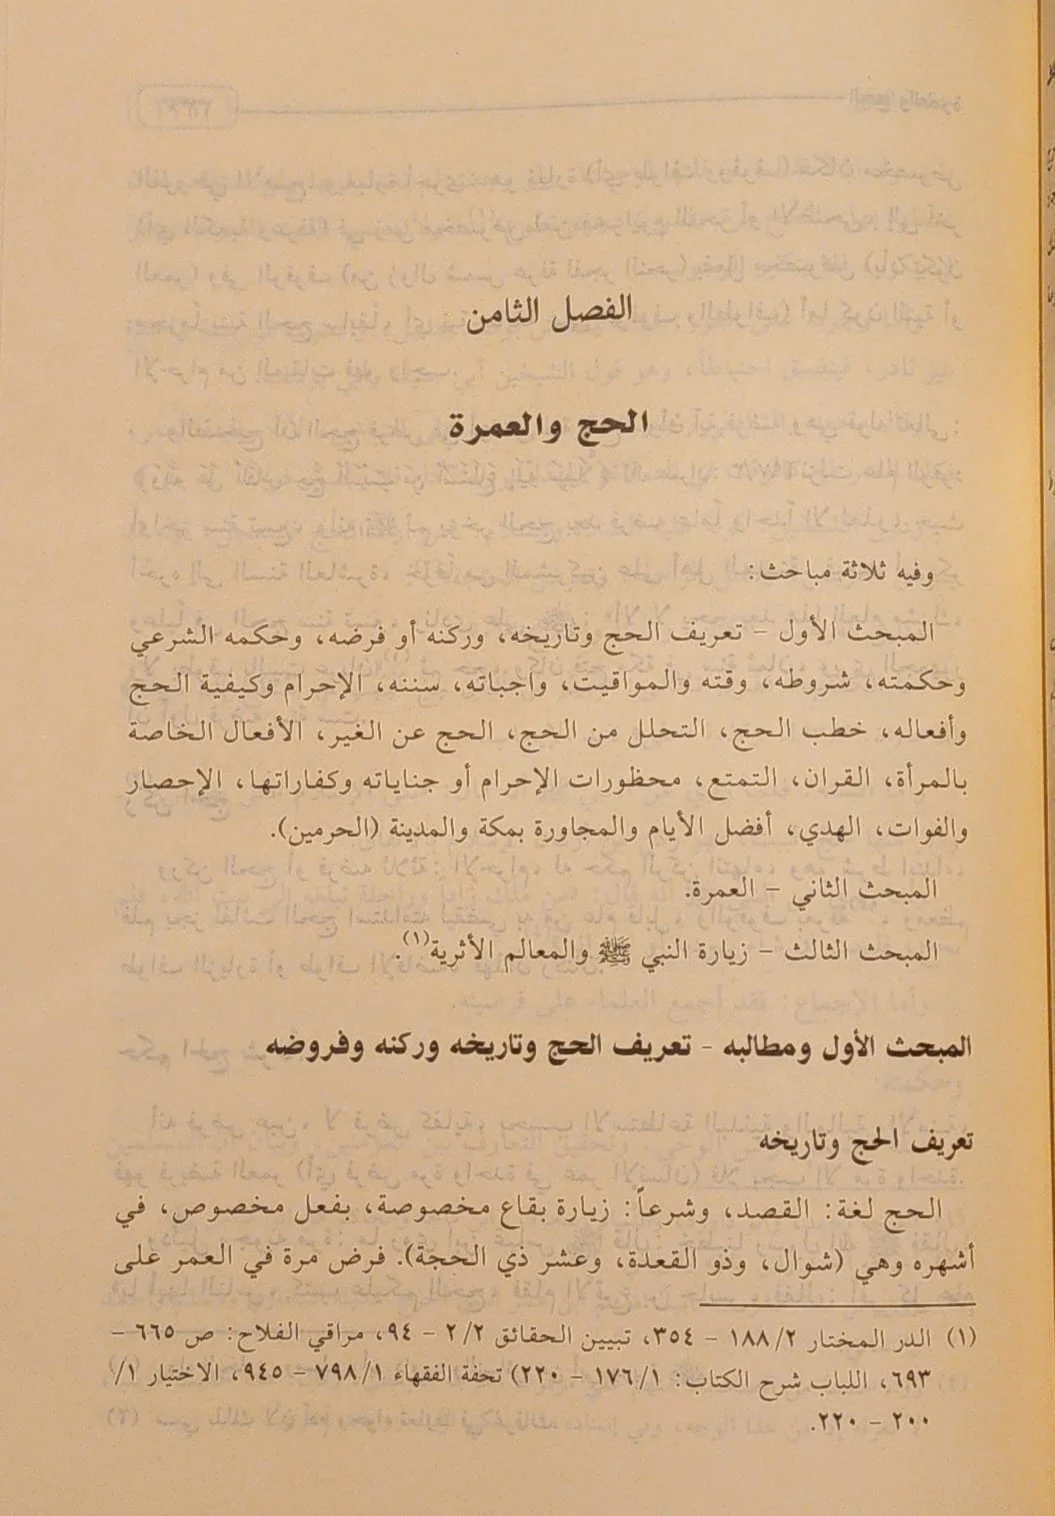 الفصل الثامن
الحج والعمرة
وفيه ثلاثة مباحث:
المبحث الأول – تعريف الحج وتاريخه، وركنه أو فرضه، وحكمه الشرعي
وحكمته، شروطه، وقته والمواقيت، واجباته، سننه، الإحرام وكيفية الحج
وأفعاله، خطب الحج، التحلل من الحج، الحج عن الغير، الأفعال الخاصة
بالمرأة، القران، التمتع، محظورات الإحرام أو جناياته وكفاراتها، الإحصار
والفوات، الهدي، أفضل الأيام والمجاورة بمكة والمدينة (الحرمين).
المبحث الثاني – العمرة.
المبحث الثالث – زيارة النبي ﷺ والمعالم الأثرية(١).
المبحث الأول ومطالبه - تعريف الحج وتاريخه وركنه وفروضه
تعريف الحج وتاريخه
الحج لغة: القصد، وشرعاً: زيارة بقاع مخصوصة، بفعل مخصوص، في
أشهره وهي (شوال، وذو القعدة، وعشر ذي الحجة). فرض مرة في العمر على
(١) الدر المختار ٢/ ١٨٨ – ٣٥٤، تبيين الحقائق ٢/ ٢ – ٩٤، مراقي الفلاح: ص ٦٦٥ –
٦٩٣، اللباب شرح الكتاب: ١/ ١٧٦ – ٢٢٠) تحفة الفقهاء ١/ ٧٩٨ – ٩٤٥، الاختيار ١/
٢٠٠ – ٢٢٠.